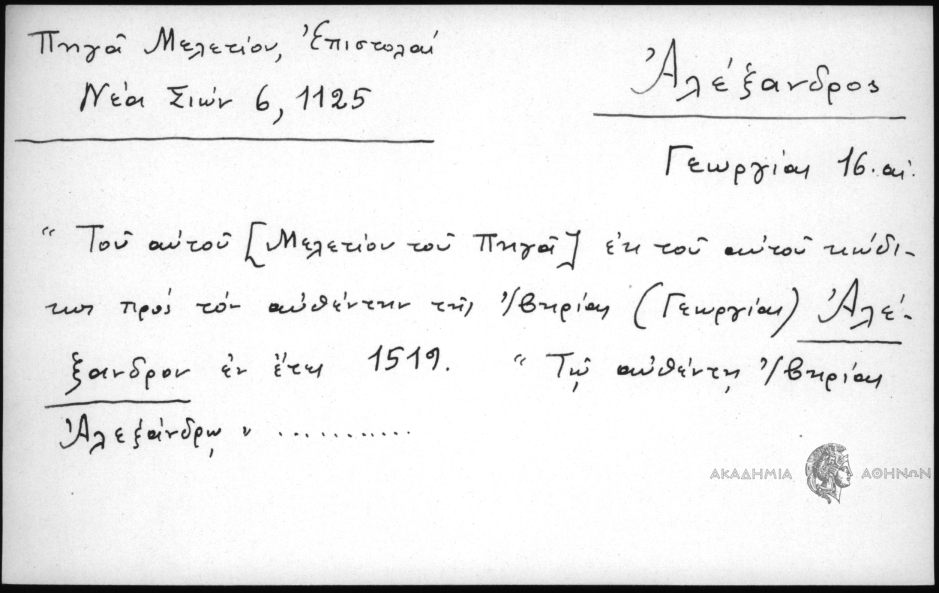 Πηγᾶ Μελετίου, Ἐπιστολαί
Νέα Σιών 6, 1125
Ἀλέξανδρος
Γεωργίας 16. αἰ.
“ Τοῦ αὐτοῦ [Μελετίου τοῦ Πηγᾶ] ἐκ τοῦ αὐτοῦ κώδι-
κος πρός τόν αὐθέντην τῆς Ἰβηρίας (Γεωργίας) Ἀλέ-
ξανδρον ἐν ἔτει 1519. “ Τῷ αὐθέντῃ Ἰβηρίας
Ἀλεξάνδρῳ ” ...........
ΑΚΑΔΗΜΙΑ ΑΘΗΝΩΝ